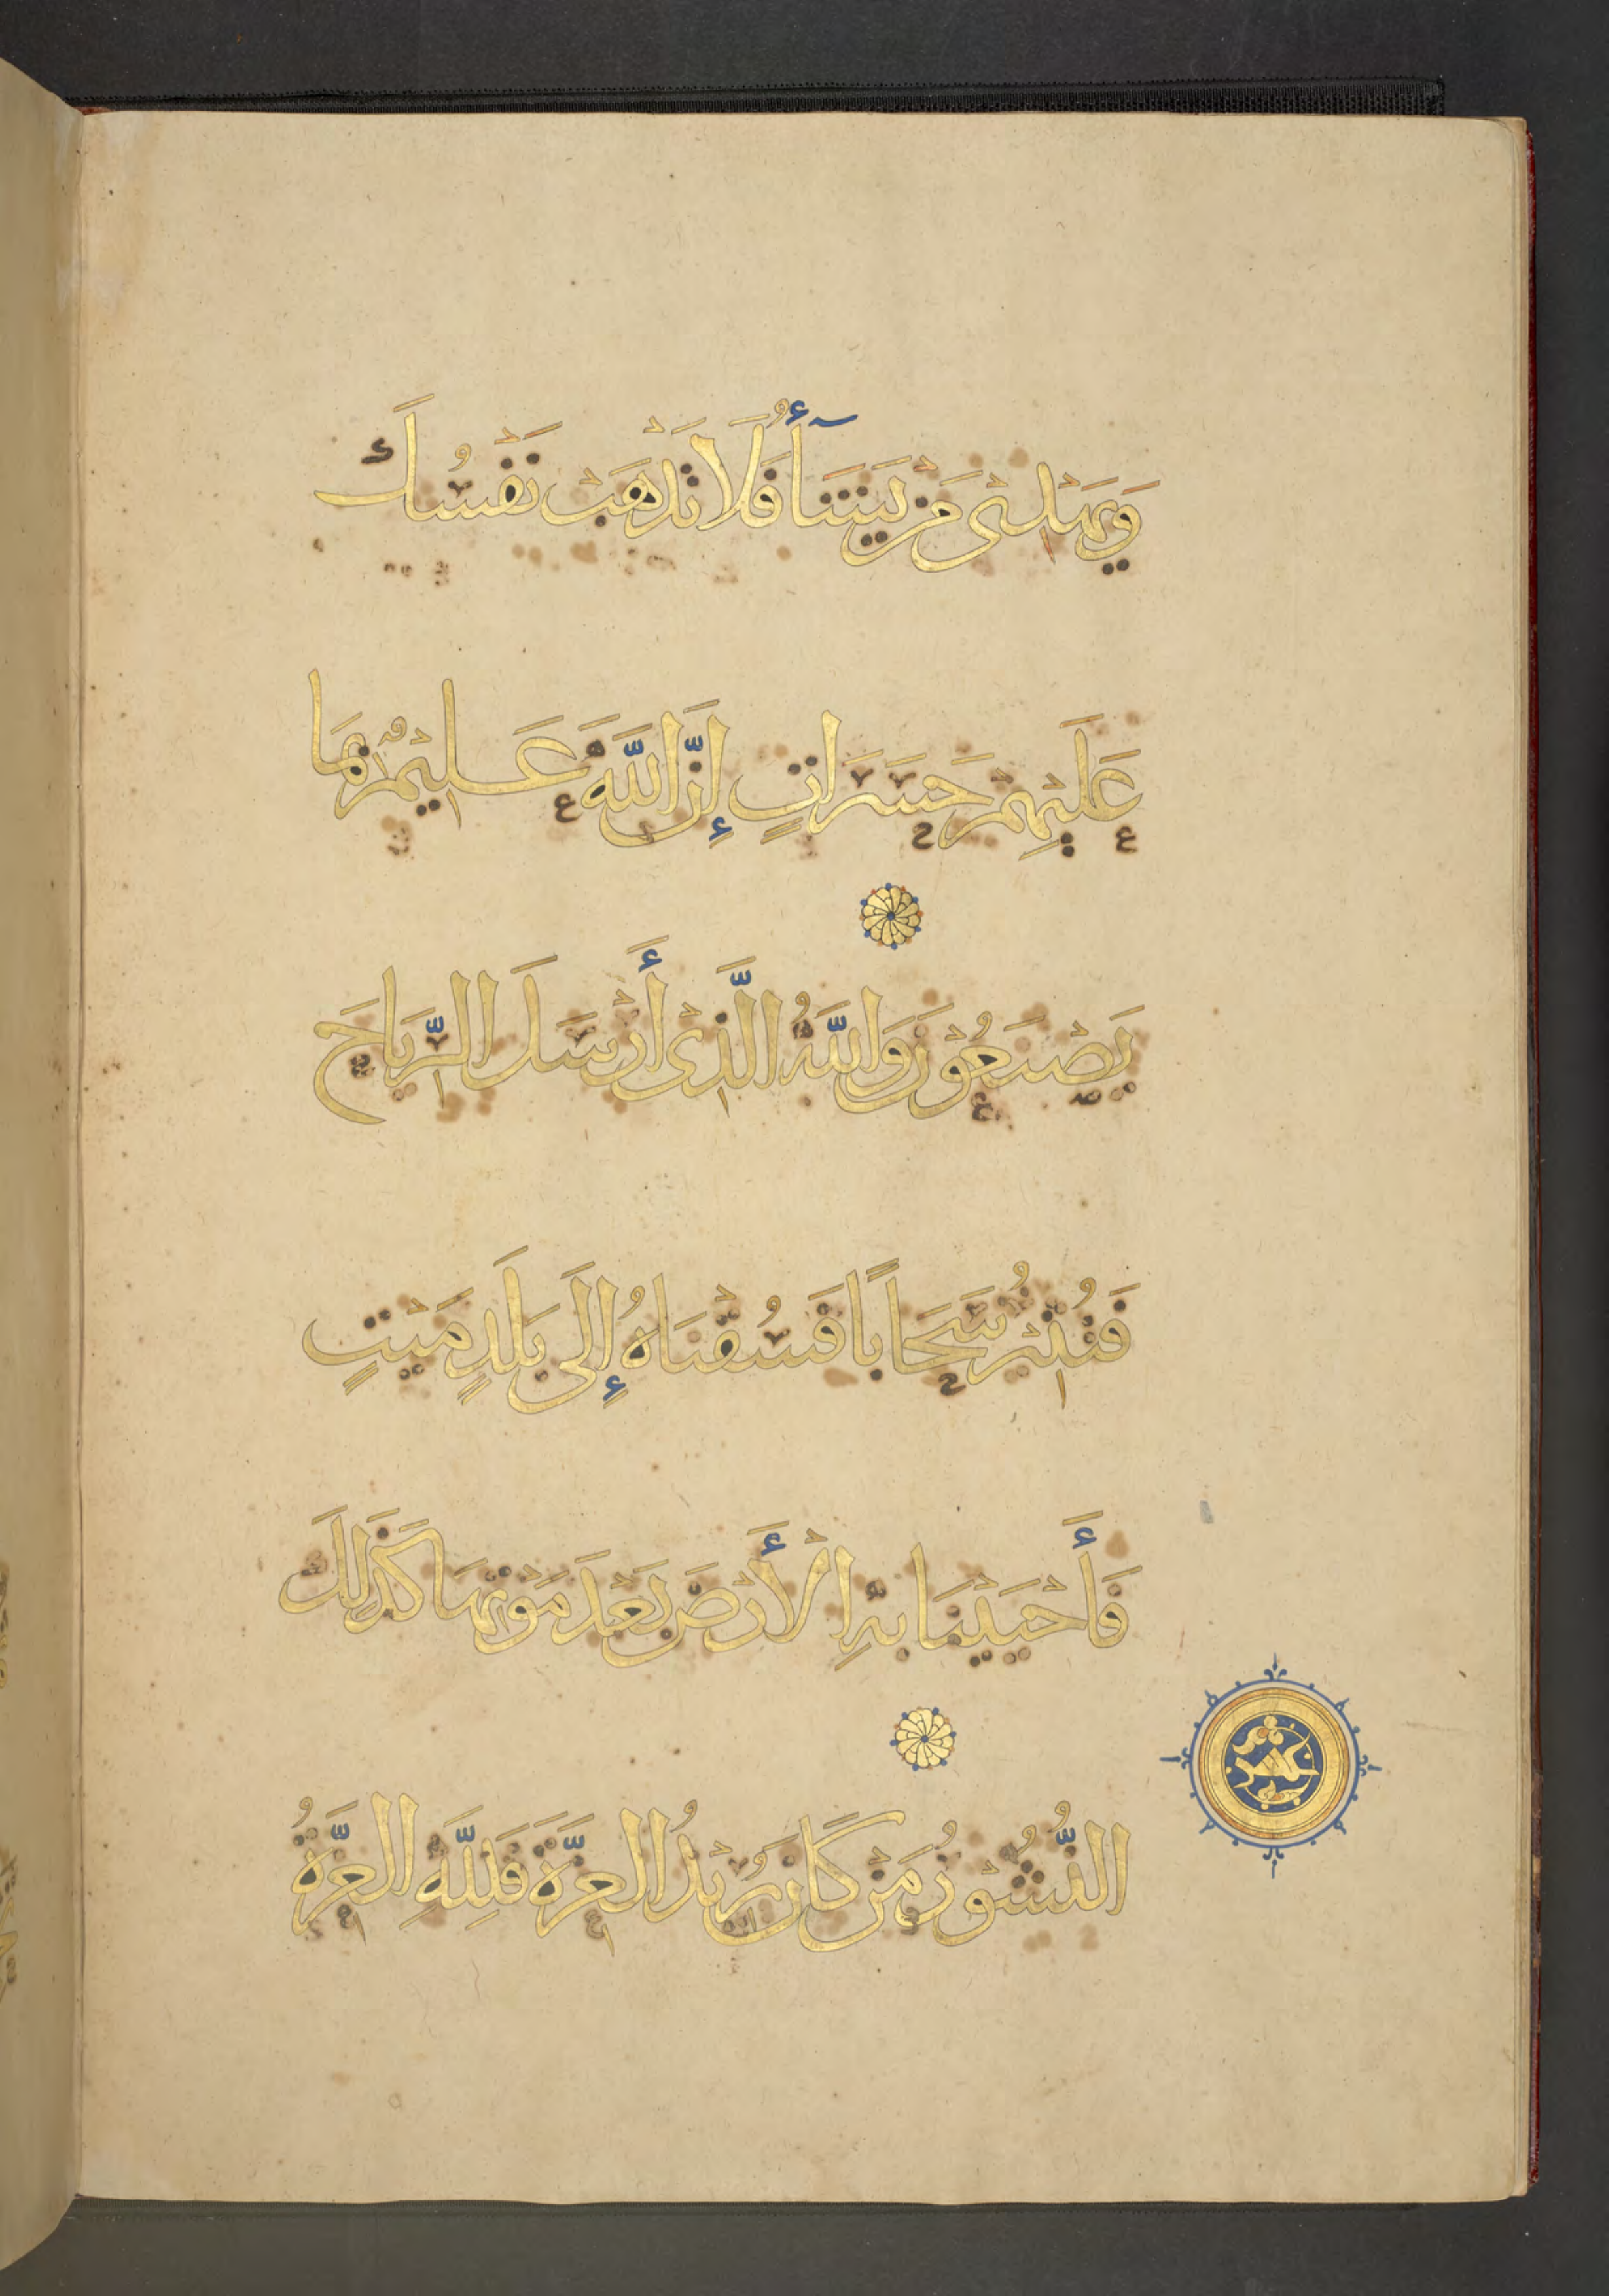 وَيَهْدِي مَنْ يَشَآءُ فَلَا تَذْهَبْ نَفْسُكَ
عَلَيْهِمْ حَسَرَاتٍ إِنَّ اللَّهَ عَلِيمٌ بِمَا
يَصْنَعُوْنَ وَاللَّهُ الَّذِيْ أَرْسَلَ الرِّيَاحَ
فَتُثِيْرُ سَحَابًا فَسُقْنَاهُ إِلَى بَلَدٍ مَيْتٍ
فَأَحْيَيْنَا بِهِ الْأَرْضَ بَعْدَ مَوْتِهَا كَذَلِكَ
النُّشُوْرُ مَنْ كَانَ يُرِيْدُ الْعِزَّةَ فَلِلَّهِ الْعِزَّةُ